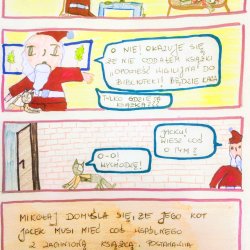 O NIE! OKAZUJE SIĘ,
ŻE NIE ODDAŁEM KSIĄŻKI
"OPOWIEŚĆ WIGILIJNA" DO
BIBLIOTEKI! BĘDZIE KARA
TYLKO GDZIE JEST
KSIĄŻKA???
JACKU!
WIESZ COŚ
O TYM?
O-O!
WYCHODZĘ!
MIKOŁAJ DOMYŚLA SIĘ, ŻE JEGO KOT
JACEK MUSI MIEĆ COŚ WSPÓLNEGO
Z ZAGINIONĄ KSIĄŻKĄ. POSTANAWIA